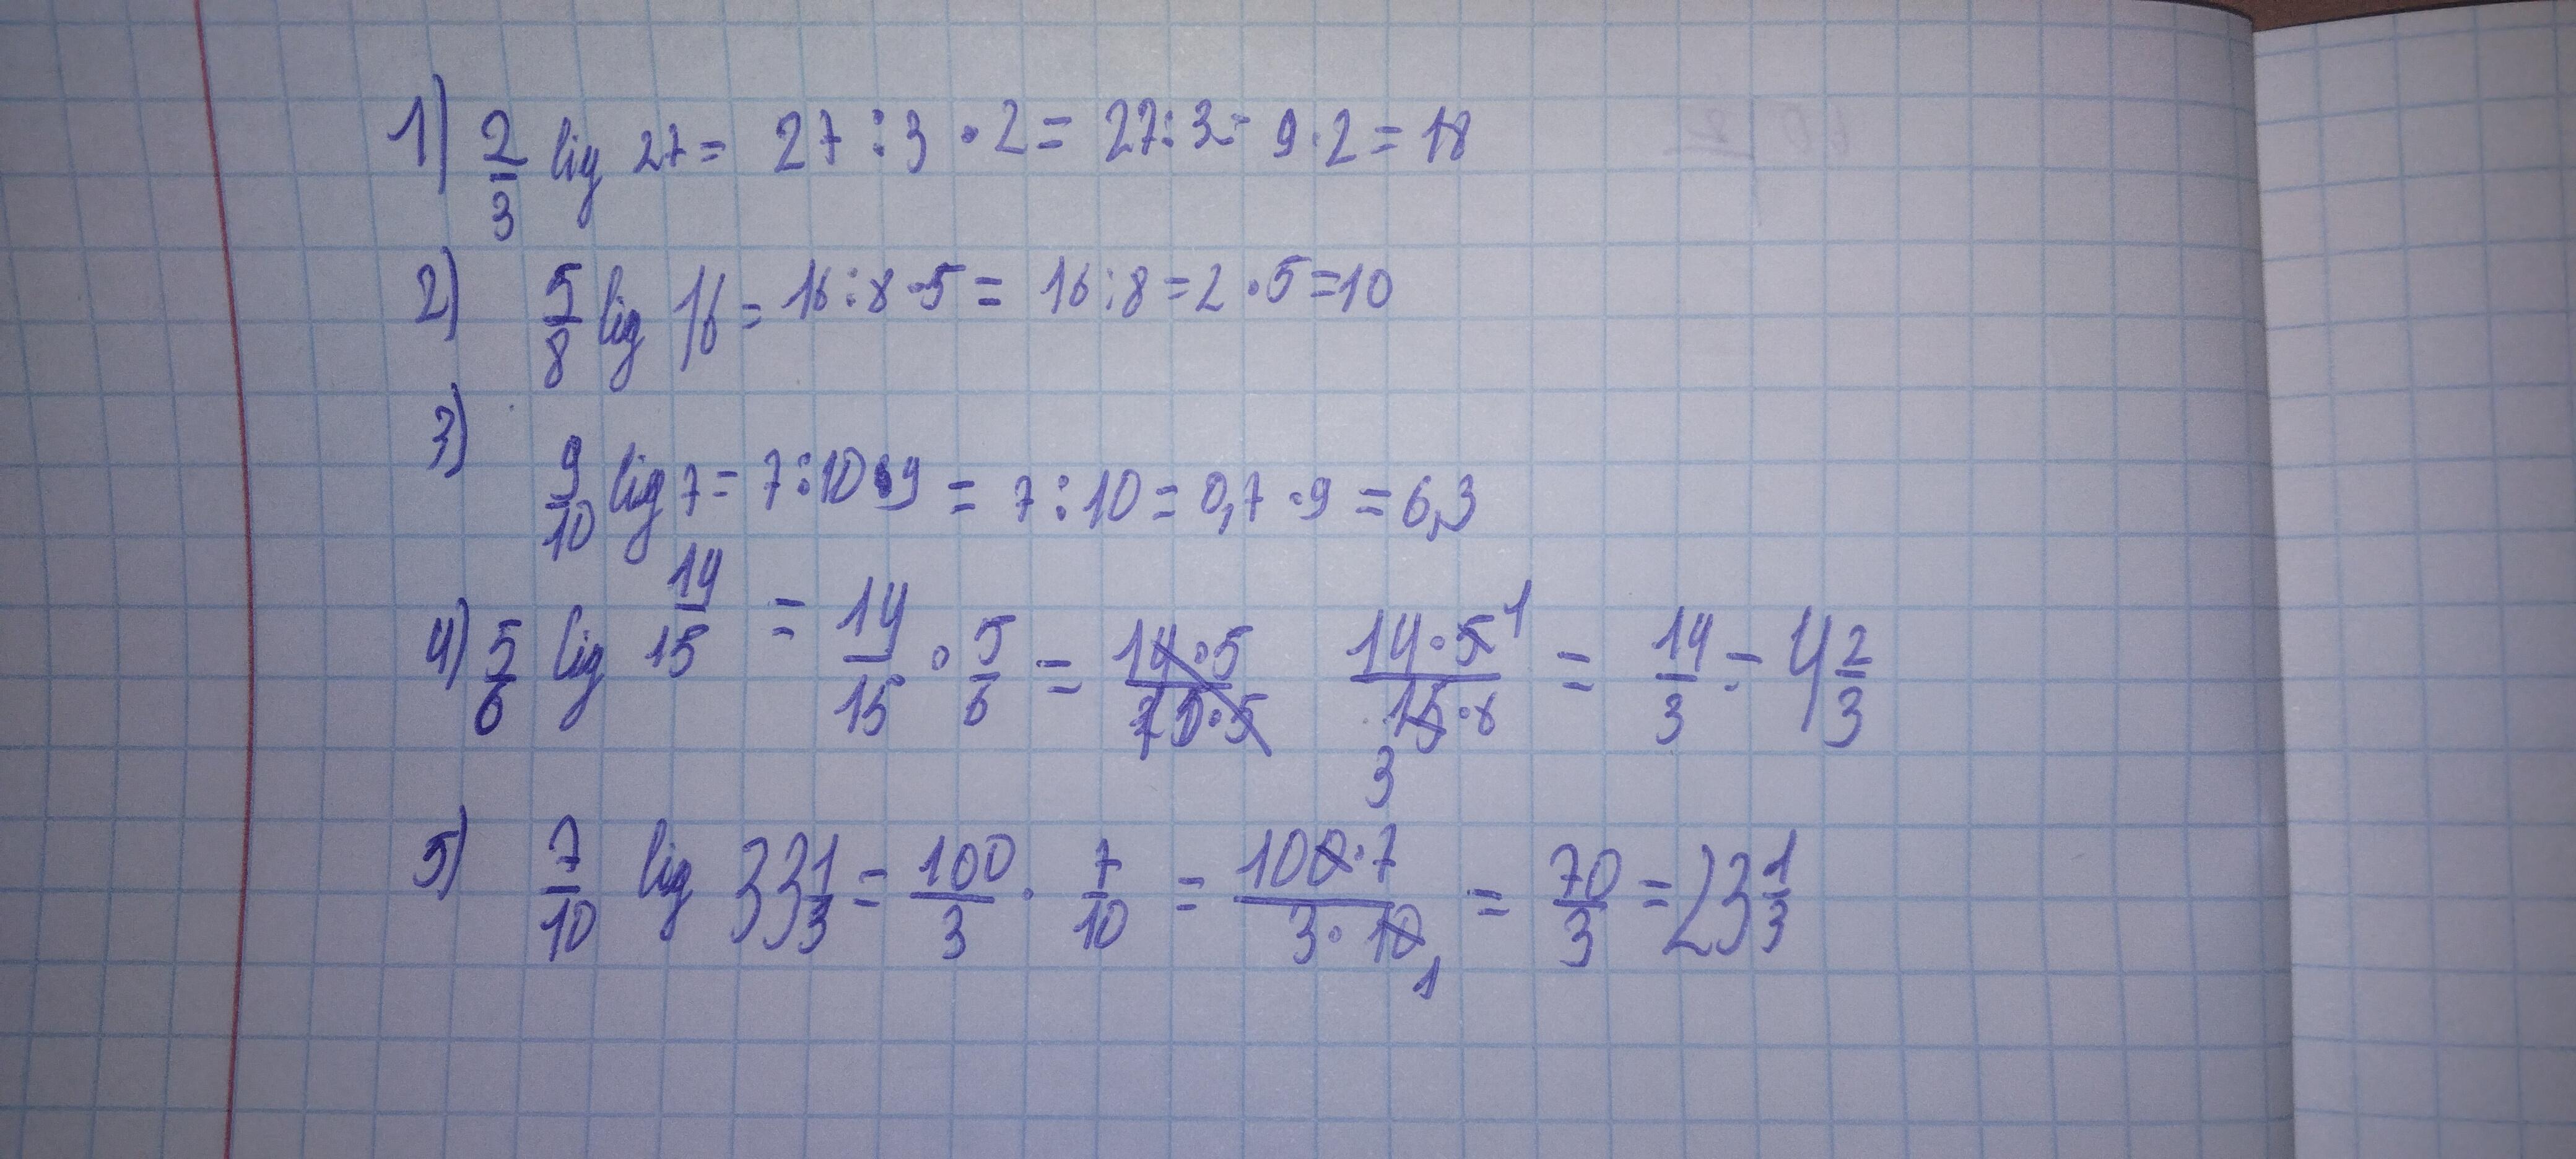 1) 2/3 lig 27 = 27 : 3 · 2 = 27 : 3 = 9 · 2 = 18
2) 5/8 lig 16 = 16 : 8 · 5 = 16 : 8 = 2 · 5 = 10
3) 9/10 lig 7 = 7 : 10 · 9 = 7 : 10 = 0,7 · 9 = 6,3
4) 5/6 lig 14/15 = 14/15 · 5/6 = 14·5/15·6 1 3 = 14/3 = 4 2/3
5) 7/10 lig 33 1/3 = 100/3 · 7/10 = 100·7/3·10 1 = 70/3 = 23 1/3